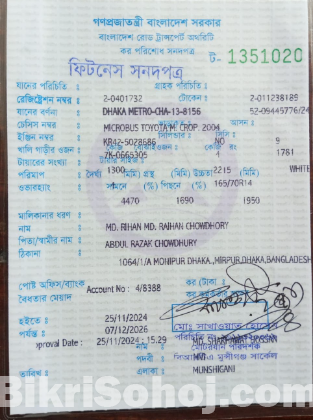 গণপ্রজাতন্ত্রী বাংলাদেশ সরকার
বাংলাদেশ রোড ট্রান্সপোর্ট অথরিটি
কর পরিশোধ সনদপত্র
ট- 1351020
ফিটনেস সনদপত্র
যানের পরিচিতি : গ্রাহক পরিচিতি :
রেজিষ্ট্রেশন নম্বর : 2-0401732 টোকেন : 2-011238189
যানের বর্ণনা : DHAKA METRO-CHA-13-8156 52-09445776/24
চেসিস নম্বর : MICROBUS TOYOTA M. CROP. 2004 আসন :
ইঞ্জিন নম্বর : KR42-5028686 NO 9
খালি গাড়ীর ওজন : 7K-0665305 4 1781
টায়ারের সংখ্যা : 1300 2215 WHITE
পরিমাপ : দৈর্ঘ্য (মিমি) প্রস্থ (মিমি) উচ্চতা (মিমি)
ওভারহ্যাংগ : সামনে (%) পিছনে (%) 165/70R14
4470 1690 1950
মালিকানার ধরণ :
নাম : MD. RIHAN MD. RAIHAN CHOWDHORY
পিতা/স্বামীর নাম : ABDUL RAZAK CHOWDHURY
ঠিকানা : 1064/1/A MONIPUR DHAKA,,MIRPUR,DHAKA,BANGLADESH
পোষ্ট অফিস/ব্যাংক Account No : 4/8388 কর (টাকা) :
বৈধতার মেয়াদ
হইতে : 25/11/2024
পর্যন্ত : 07/12/2026
oproval Date : 25/11/2024 : 15.29 MD. SHAKHAWAT HOSSAN
নাম :
পদবী : MVI
তারিখ : এলাকা : MUNSHIGANJ
BikriSohoj.com